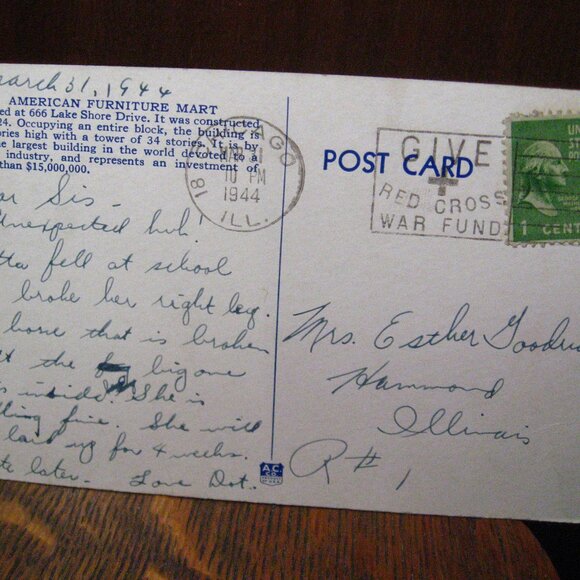 March 31, 1944
AMERICAN FURNITURE MART
ed at 666 Lake Shore Drive. It was constructed
24. Occupying an entire block, the building is
ories high with a tower of 34 stories. It is by
e largest building in the world devoted to a
industry, and represents an investment of
than $15,000,000.
ar Sis-
Unexpected huh!
tta fell at school
broke her right leg.
bone that is broken
the big one
inside. She is
ling fine. She will
laid up for 4 weeks.
te later. Love Dot.
CHICAGO
18
MAR 31
10 PM
1944
ILL.
GIVE
RED CROSS
WAR FUND
POST CARD
1 CENT
Mrs. Esther Goodri
Hammond
Illinois
R # 1
A.C.
CO.